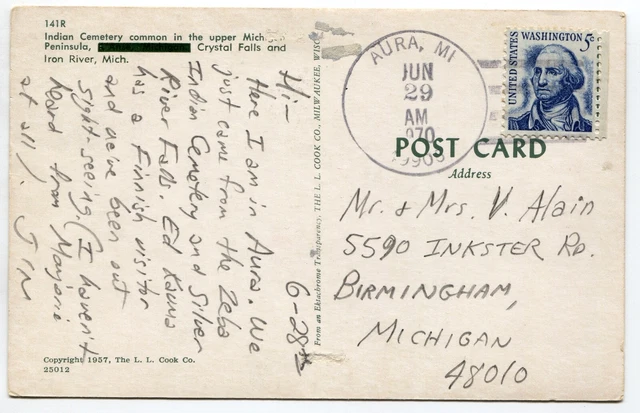 141R
Indian Cemetery common in the upper Michigan
Peninsula, Crystal Falls and
Iron River, Mich.
6-28
Hi-
Here I am in Aura. We
just came from the Zeba
Indian Cemetery and Silver
River Falls. Ed Kauma
has a Finnish visitor
and we've been out
sight-seeing. (I haven't
heard from Marjorie
at all). Jim
Copyright 1957, The L. L. Cook Co.
25012
From an Ektachrome Transparency, THE L. L. COOK CO., MILWAUKEE, WISC
AURA, MI
JUN
29
AM
1970
UNITED STATES
WASHINGTON 5¢
POST CARD
Address
Mr. & Mrs. V. Alain
5590 INKSTER RD.
BIRMINGHAM,
MICHIGAN
48010